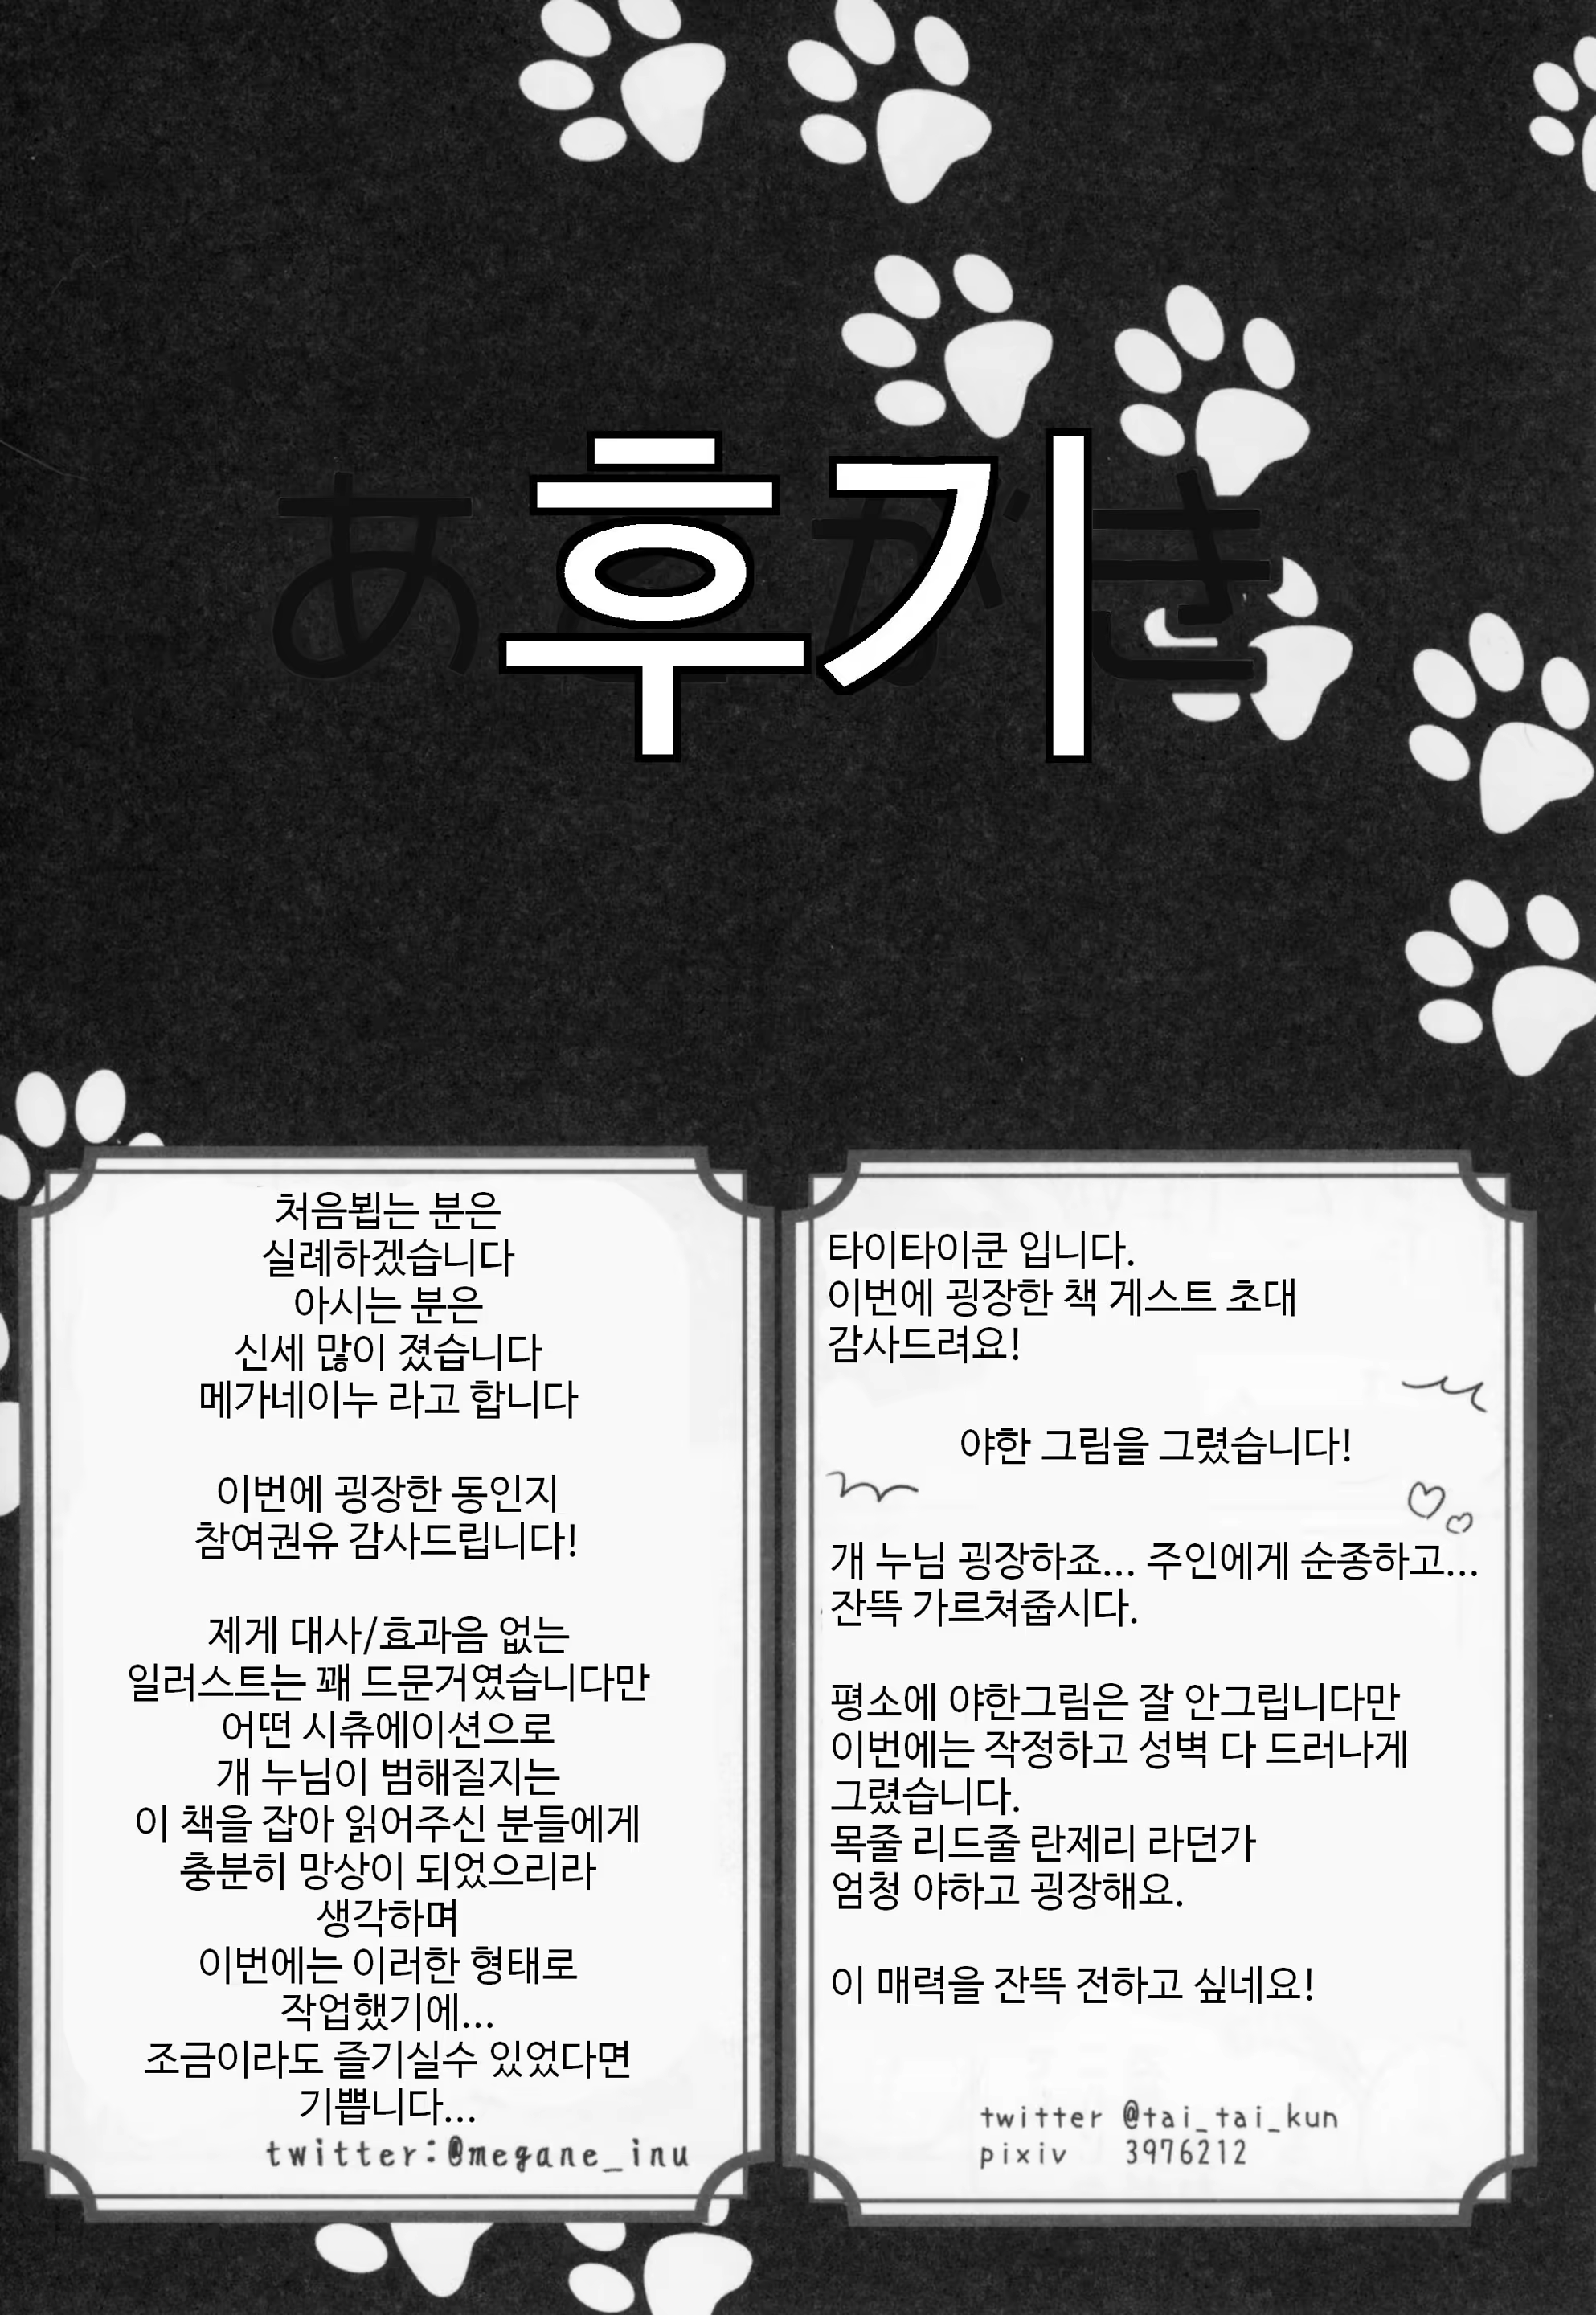 あとがき
후기
처음뵙는 분은
실례하겠습니다
아시는 분은
신세 많이 졌습니다
메가네이누 라고 합니다
이번에 굉장한 동인지
참여권유 감사드립니다!
제게 대사/효과음 없는
일러스트는 꽤 드문거였습니다만
어떤 시츄에이션으로
개 누님이 범해질지는
이 책을 잡아 읽어주신 분들에게
충분히 망상이 되었으리라
생각하며
이번에는 이러한 형태로
작업했기에...
조금이라도 즐기실수 있었다면
기쁩니다...
twitter:@megane_inu
타이타이쿤 입니다.
이번에 굉장한 책 게스트 초대
감사드려요!
야한 그림을 그렸습니다!
개 누님 굉장하죠... 주인에게 순종하고...
잔뜩 가르쳐줍시다.
평소에 야한그림은 잘 안그립니다만
이번에는 작정하고 성벽 다 드러나게
그렸습니다.
목줄 리드줄 란제리 라던가
엄청 야하고 굉장해요.
이 매력을 잔뜩 전하고 싶네요!
twitter @tai_tai_kun
pixiv 3976212